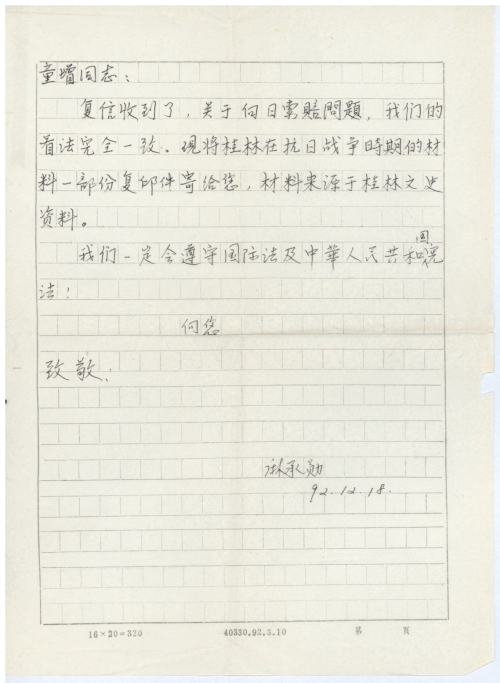 童增同志：
复信收到了，关于向日索赔问题，我们的
看法完全一致。现将桂林在抗日战争时期的材
料一部份复印件寄给您，材料来源于桂林文史
资料。
我们一定会遵守国际法及中華人民共和国宪
法！
向您
致敬！
林承勋
92.12.18.
16×20=320 40330.92.3.10 第 页